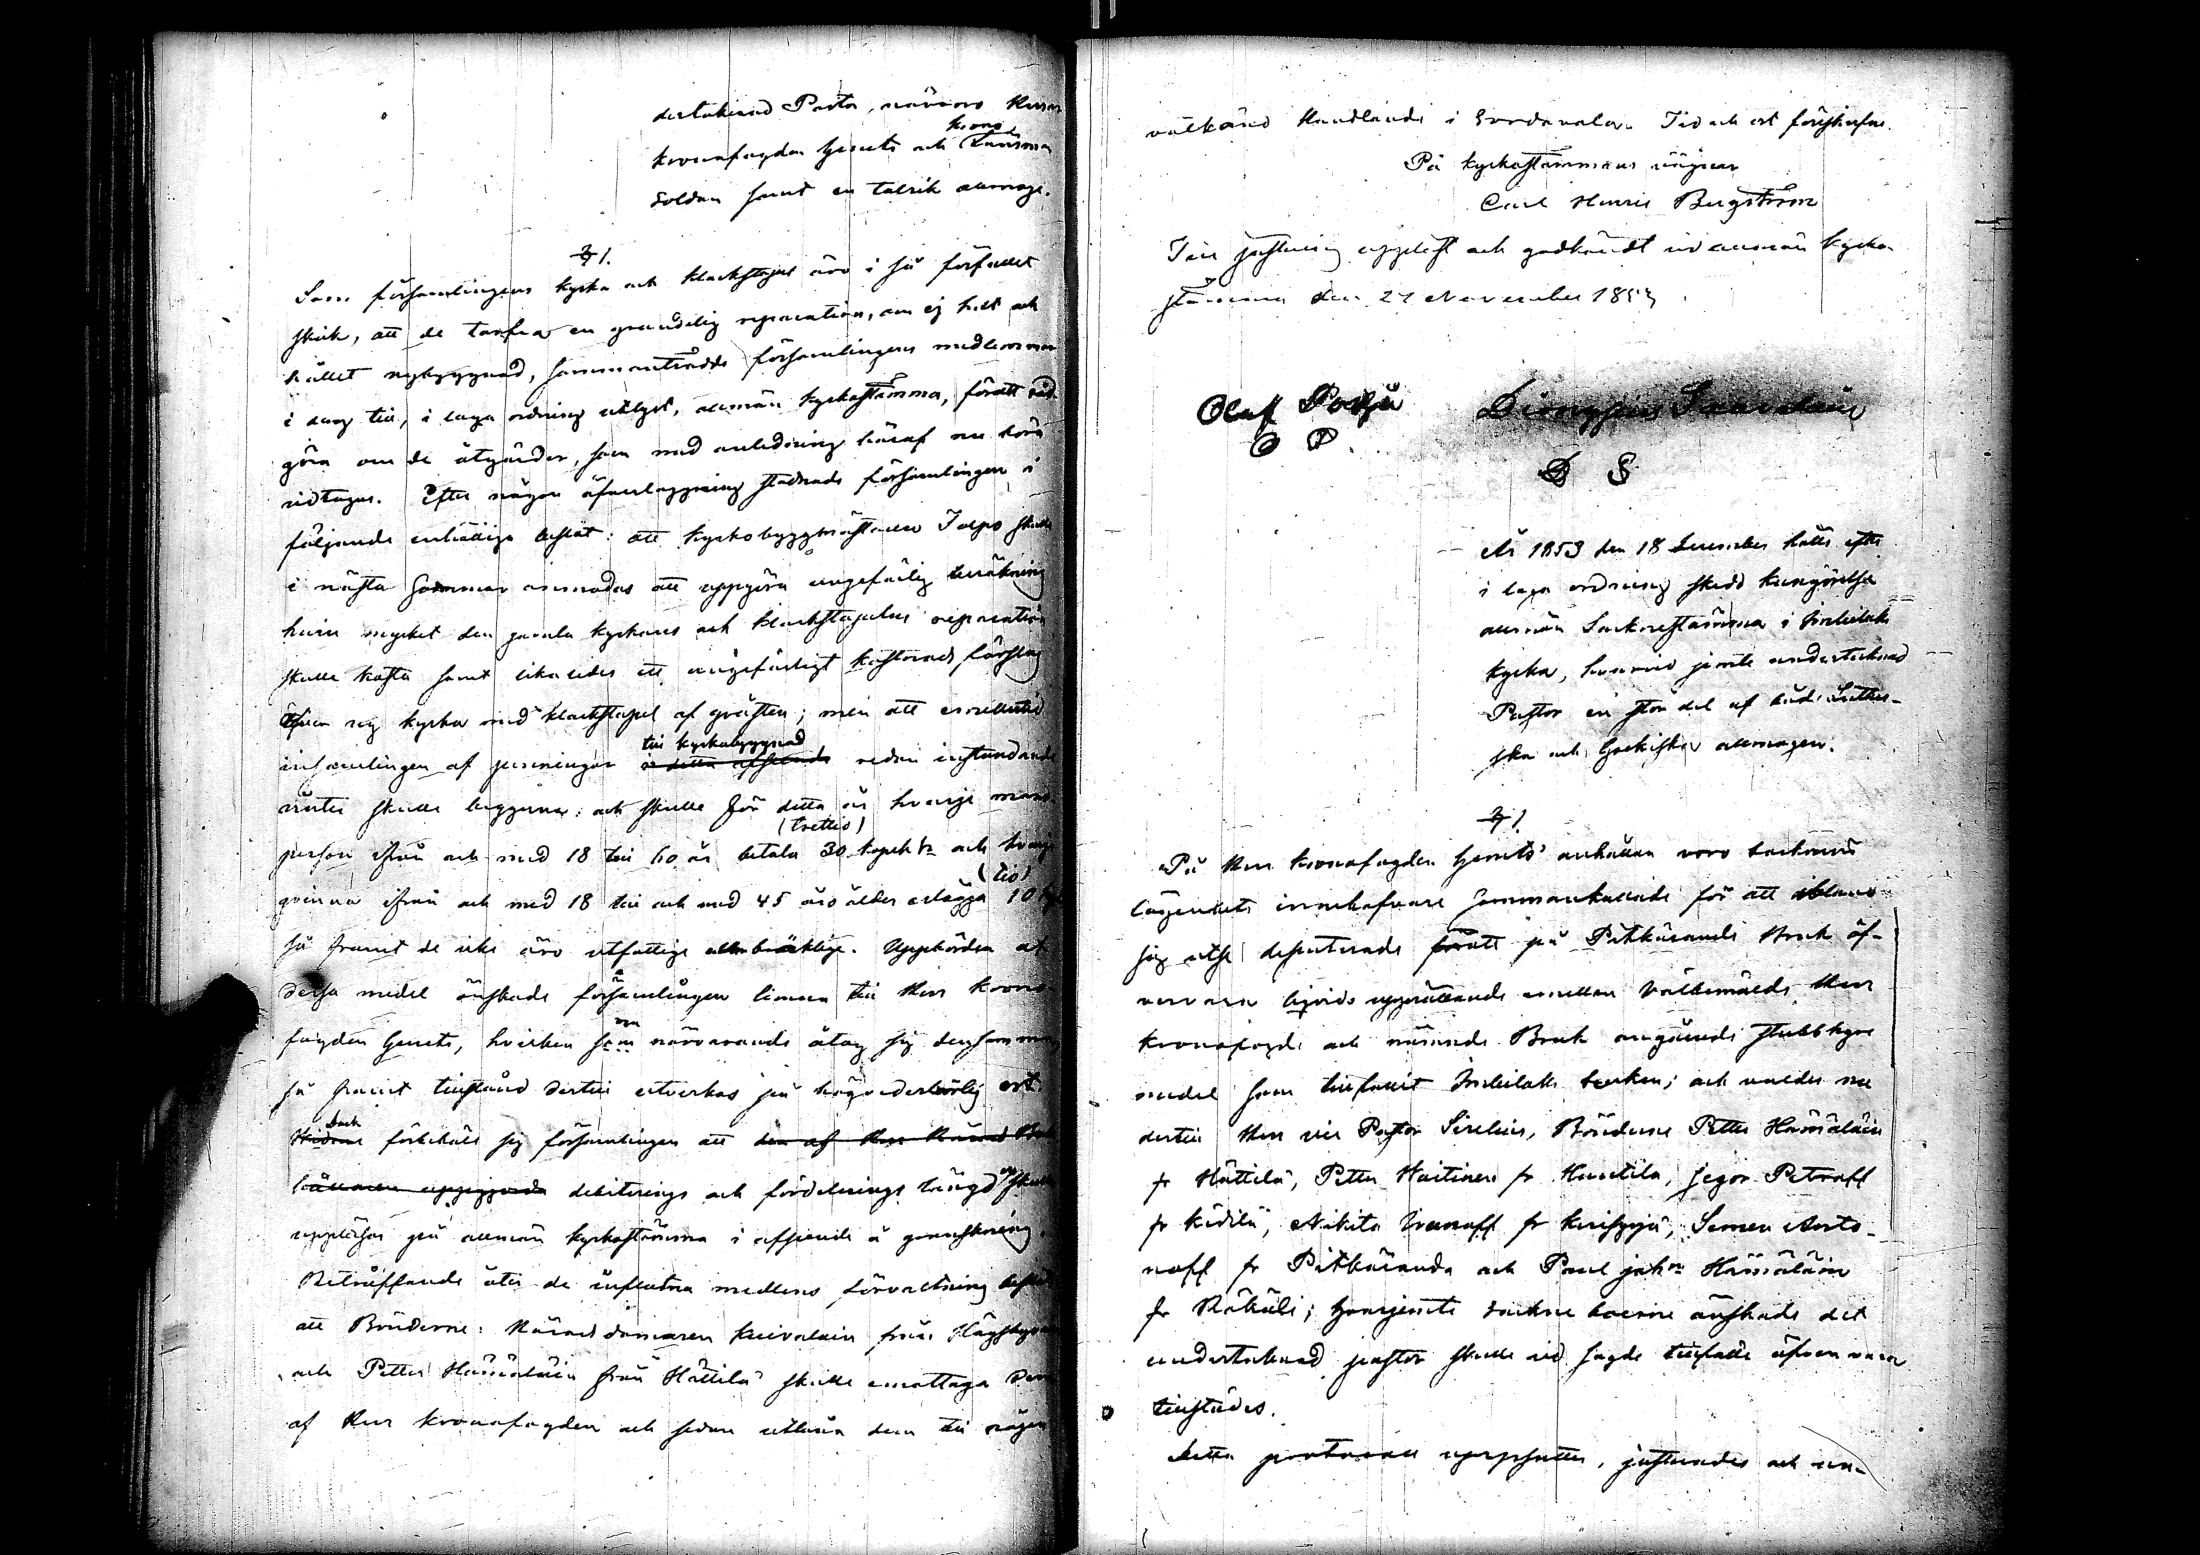 dertecknad Pastor, närvaro Herrar
kronofogden Gerets och krono Länsman
Soldan samt en talrik allmoge.
§ 1.
Som församlingens kyrka och klockstapel äro i så förfallet
skick, att de tarfva en grundelig reparation, om ej helt och
hållet nybyggnad, sammanträdde församlingens medlemmar
i dag till, i laga ordning utlyst, allmän kyrkostämma, för att råd-
göra om de åtgärder, som med anledning häraf nu böra
vidtagas. Efter någon öfverläggning stadnade församlingen i
följande enhälliga beslut: att kyrkobyggmästaren Tolpo skulle
i nästa sommar anmodas att uppgöra ungefärlig beräkning
huru mycket den gamla kyrkans och klockstapelns reparation
skulle kosta samt likaledes ett ungefärligt kostnads förslag
till en ny kyrka med klockstapel af gråsten; men att emellertid
insamlingen af penningar till kyrkobyggnad redan instundande
vinter skulle begynna: och skulle för detta år hvarje mans-
person ifrån och med 18 till 60 år betala 30 (trettio) kopek Sr och hvarje
qvinna ifrån och med 18 till och med 45 års ålder erlägga 10 (tio) kop
så framt de icke äro utfattige eller bräcklige. Uppbörden af
dessa medel önskade församlingen lämna till Herr krono-
fogden Gerets, hvilken som närvarande åtog sig densamma,
så framt tillstånd dertill utverkas på högvederbörlig ort.
Dock förbehåll sig församlingen att
debiterings och fördelnings längd skulle
uppläsas på allmän kyrkostämma i afseende å granskning.
Beträffande åter de influtna medlens förvaltning beslöts
att Bönderne: Häradsdomaren Kuivalain från
och Petter Hämäläin från Hättilä skulle emottaga dem
af Herr kronofogden och sedan utlåna dem till någon
välkänd Handlande i Sordavala. Tid och ort förutskrifne.
På kyrkostämmans vägnar
Carl Henric Bergström
Till justering uppläst och godkändt vid allmän kyrko-
stämma den 27 November 1853.
Olaf
O P.
D S
År 1853 den 18 December hölls efter
i laga ordning skedd kungörelse
allmän Sockenstämma i Impilaks
kyrka, hvarvid jemte undertecknad
Pastor en stor del af både Luther-
ska och Grekiska allmogen.
§ 1.
På Herr kronofogden Gerets' anhållan voro socknens
lägenhets innehafvare sammankallade för att ibland
sig utse deputerade för att på Pitkäranda Bruk öf-
vervara liqvids upprättande emellan Välbemälde Herr
kronofogde och nämnde Bruk angående stubbhyre
medel som tillfallit Impilaks socken; och valdes nu
dertill Herr vice Pastor Sirelius, Bönderne Petter Hämäläin
fr Hättilä, Petter Haitinen fr Huntila, Jegor Petroff
fr Kidilä, Nikita Ivanoff fr Kerisyrjä, Semen Anto-
noff fr Pitkäranda och Paul Johsn Hämäläin
fr Rökälä; hvarjemte sockne boerne önskade det
undertecknad pastor skulle vid sagde tillfälle äfven vara
tillstädes.
Detta protocoll uppsattes, justerades och un-